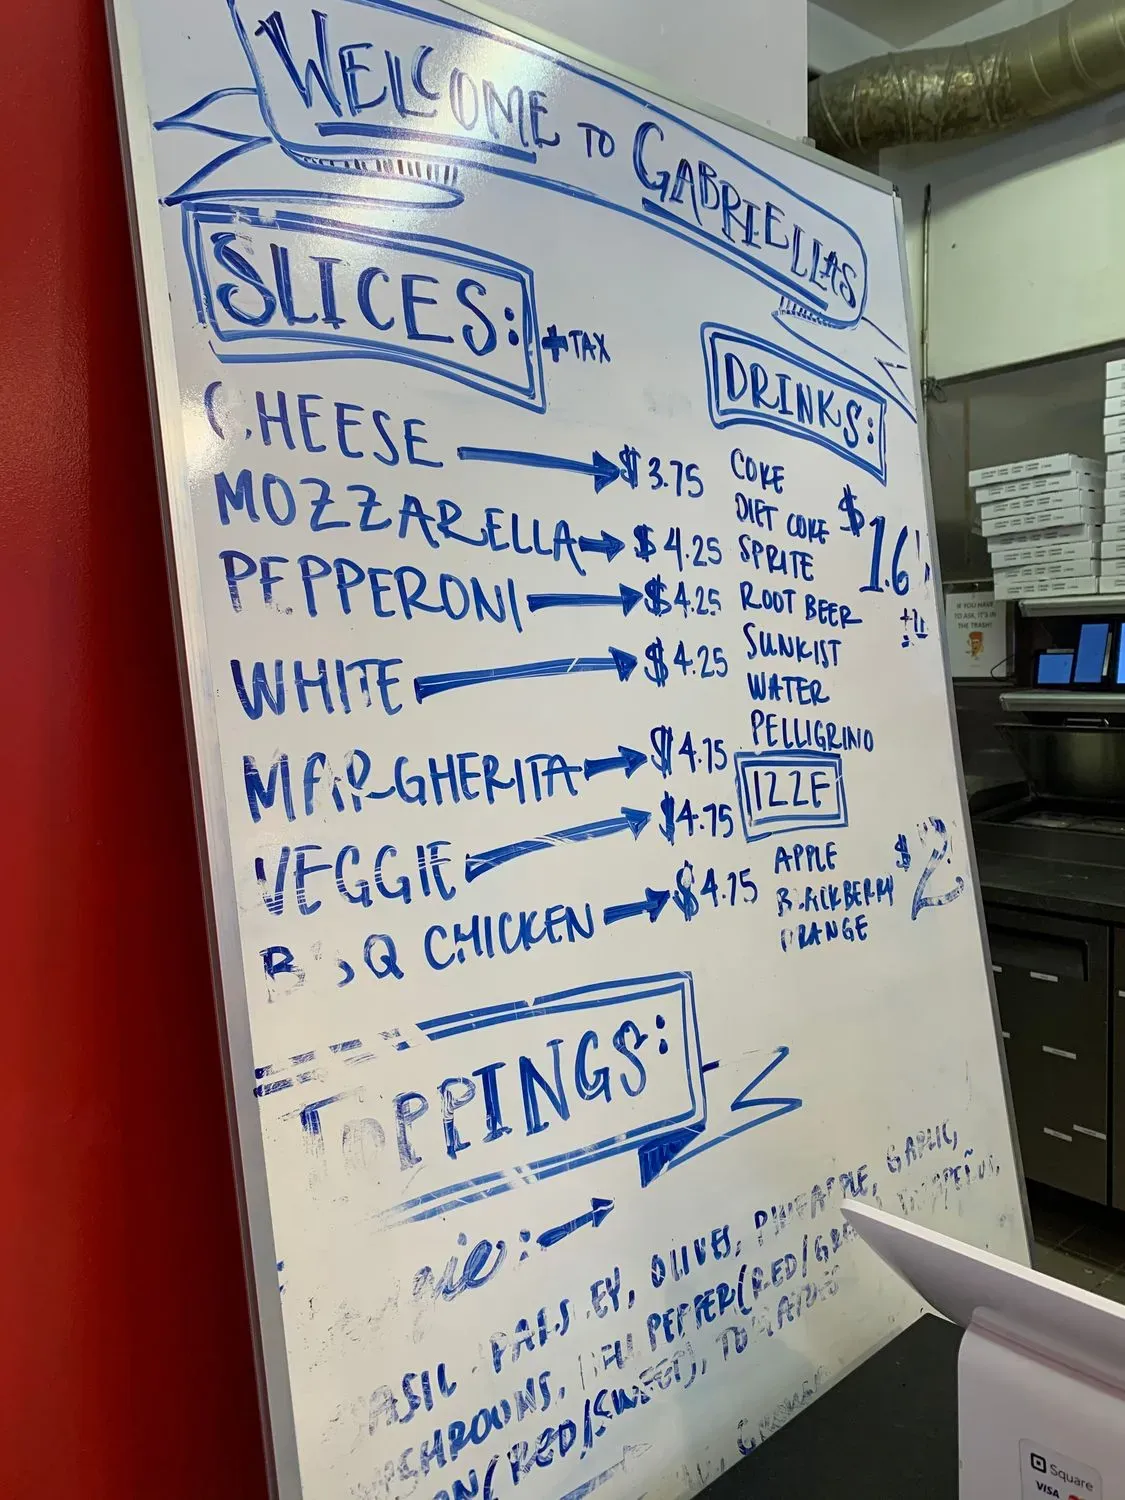 WELCOME TO GABRIELLAS
SLICES: + TAX
CHEESE → $3.75
MOZZARELLA → $4.25
PEPPERONI → $4.25
WHITE → $4.25
MARGHERITA → $4.75
VEGGIE → $4.75
BBQ CHICKEN → $4.75
DRINKS:
COKE
DIET COKE
SPRITE
ROOT BEER
SUNKIST
WATER
PELLIGRINO
IZZE
APPLE
BLACKBERRY
ORANGE
$2
TOPPINGS:
BASIL, PARSLEY, OLIVES, PINEAPPLE, GARLIC,
MUSHROOMS, BELL PEPPER (RED/
(RED/SWEET), TOMATOES
IF YOU HAVE
TO ASK, IT'S IN
THE TRASH!
Square
VISA